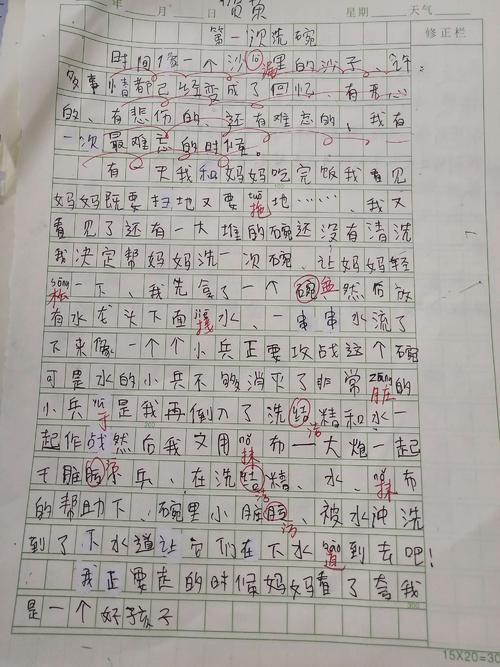 年 月 日 星期 天气
修正栏
第一次洗碗
时间像一个沙 里的沙子、许
多事情都已经变成了回忆、有
的、有悲伤的、还有难忘的、我有
一次最难忘的时候。
有一天我和妈妈吃完饭我看见
妈妈既要扫地又要拖地……、我又
看见了还有一大堆的碗还没有清洗
我决定帮妈妈洗一次碗、让妈妈轻
sōng
松一下、我先拿了一个碗 然后放
有水龙头下面接水、一串串水流了
下来像一个个小兵正要攻战这个碗
可是水的小兵不够消灭了非常zāng脏的
小兵于是我再倒入了洗结洁精和水一
起作战然后我又用mā抹布一大炮一起
干脏 兵、在洗 精、水、mā抹布
的帮助下、碗里小脏 、被水冲洗
到了下水道让它们在下水dào道到去吧!
我正要走的时候妈妈看了夸我
是一个好孩子
15X20=30